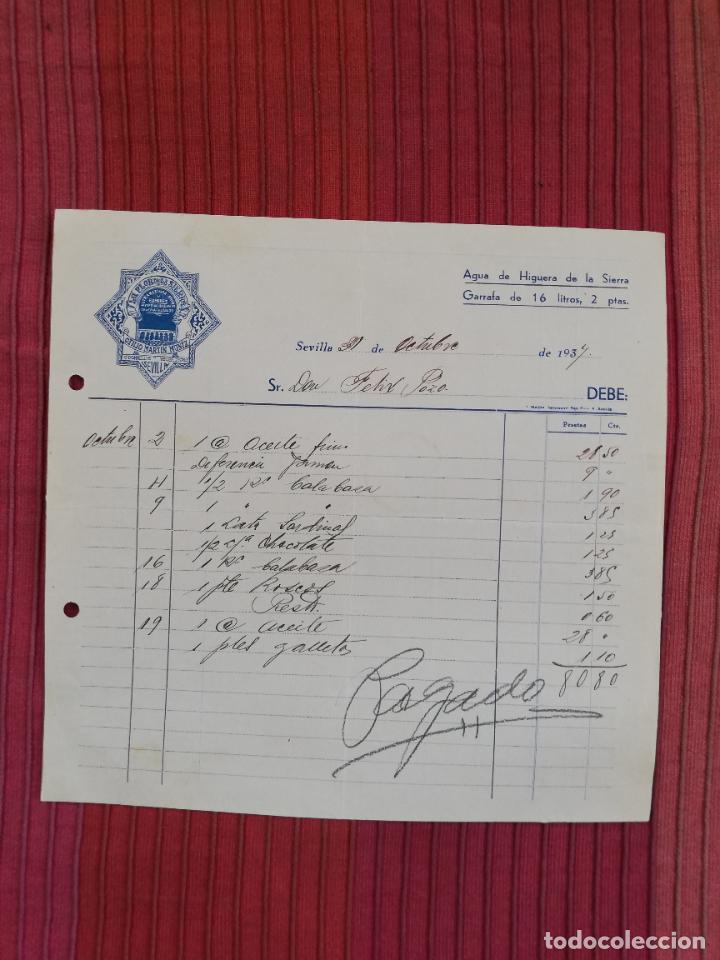 LA FLOR DE LA SIERRA
MARTIN MUÑIZ
SEVILLA
Agua de Higuera de la Sierra
Garrafa de 16 litros, 2 ptas.
Sevilla 31 de Octubre de 1937.
Sr. Don Felix Pozo
DEBE:
Pesetas Cts.
Octubre 2 1 @ aceite fino 28 50
Diferencia Jamon 9 "
4 1/2 Kº Calabaza 1 90
9 1 " " 3 85
1 Lata Sardinas 1 25
1/2 Chocolate 1 25
16 1 Kº Calabaza 3 85
18 1 pte Roscos 1 50
Resto 0 60
19 1 @ aceite 28 "
1 ptes galletas 1 10
80 80
Pagado
todocoleccion